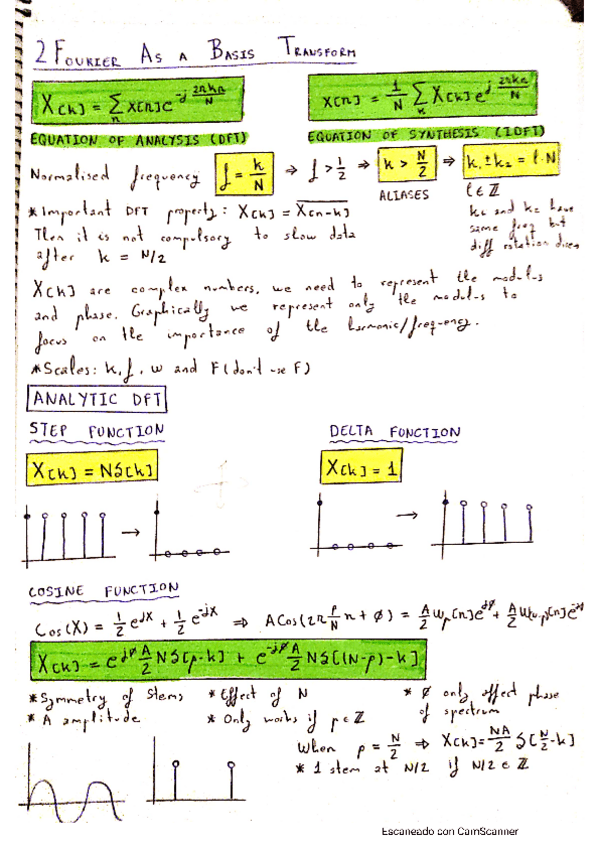 2 FOURIER AS A BASIS TRANSFORM
X[k] = Σn x[n] e^-j 2πkn/N
x[n] = 1/N Σk X[k] e^j 2πkn/N
EQUATION OF ANALYSIS (DFT)
EQUATION OF SYNTHESIS (IDFT)
Normalised frequency f = k/N ⇒ f > 1/2 ⇒ k > N/2 ⇒ k1 ± k2 = l·N
ALIASES
l ∈ ℤ
k1 and k2 have
same freq but
diff rotation
*Important DFT property: X[k] = X[n-k]
Then it is not compulsory to show data
after k = N/2
X[k] are complex numbers, we need to represent the modulus
and phase. Graphically we represent only the modulus to
focus on the importance of the harmonic/frequency.
*Scales: k, f, ω and F (don't use F)
ANALYTIC DFT
STEP FUNCTION
X[k] = NS[k]
DELTA FUNCTION
X[k] = 1
COSINE FUNCTION
Cos(X) = 1/2 e^jX + 1/2 e^-jX ⇒ A Cos(2π P/N n + ø) = A/2 Wp[n] e^jø + A/2 WN-p[n] e^-jø
X[k] = e^jø A/2 NS[p-k] + e^-jø A/2 NS[(N-p)-k]
*Symmetry of Stems
*A amplitude
*Effect of N
*Only works if p ∈ ℤ
* ø only affect phase
of spectrum
When p = N/2 ⇒ X[k] = NA/2 S[N/2-k]
* 1 stem at N/2 if N/2 ∈ ℤ
Escaneado con CamScanner